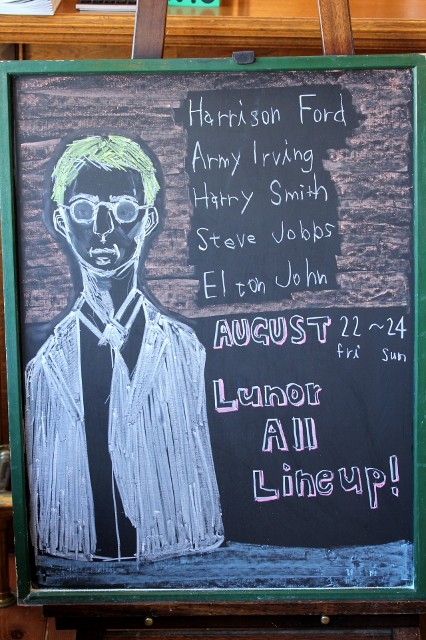 Harrison Ford
Army Irving
Harry Smith
Steve Jobbs
Elton John
AUGUST 22~24
fri sun
Lunor
All
Lineup!